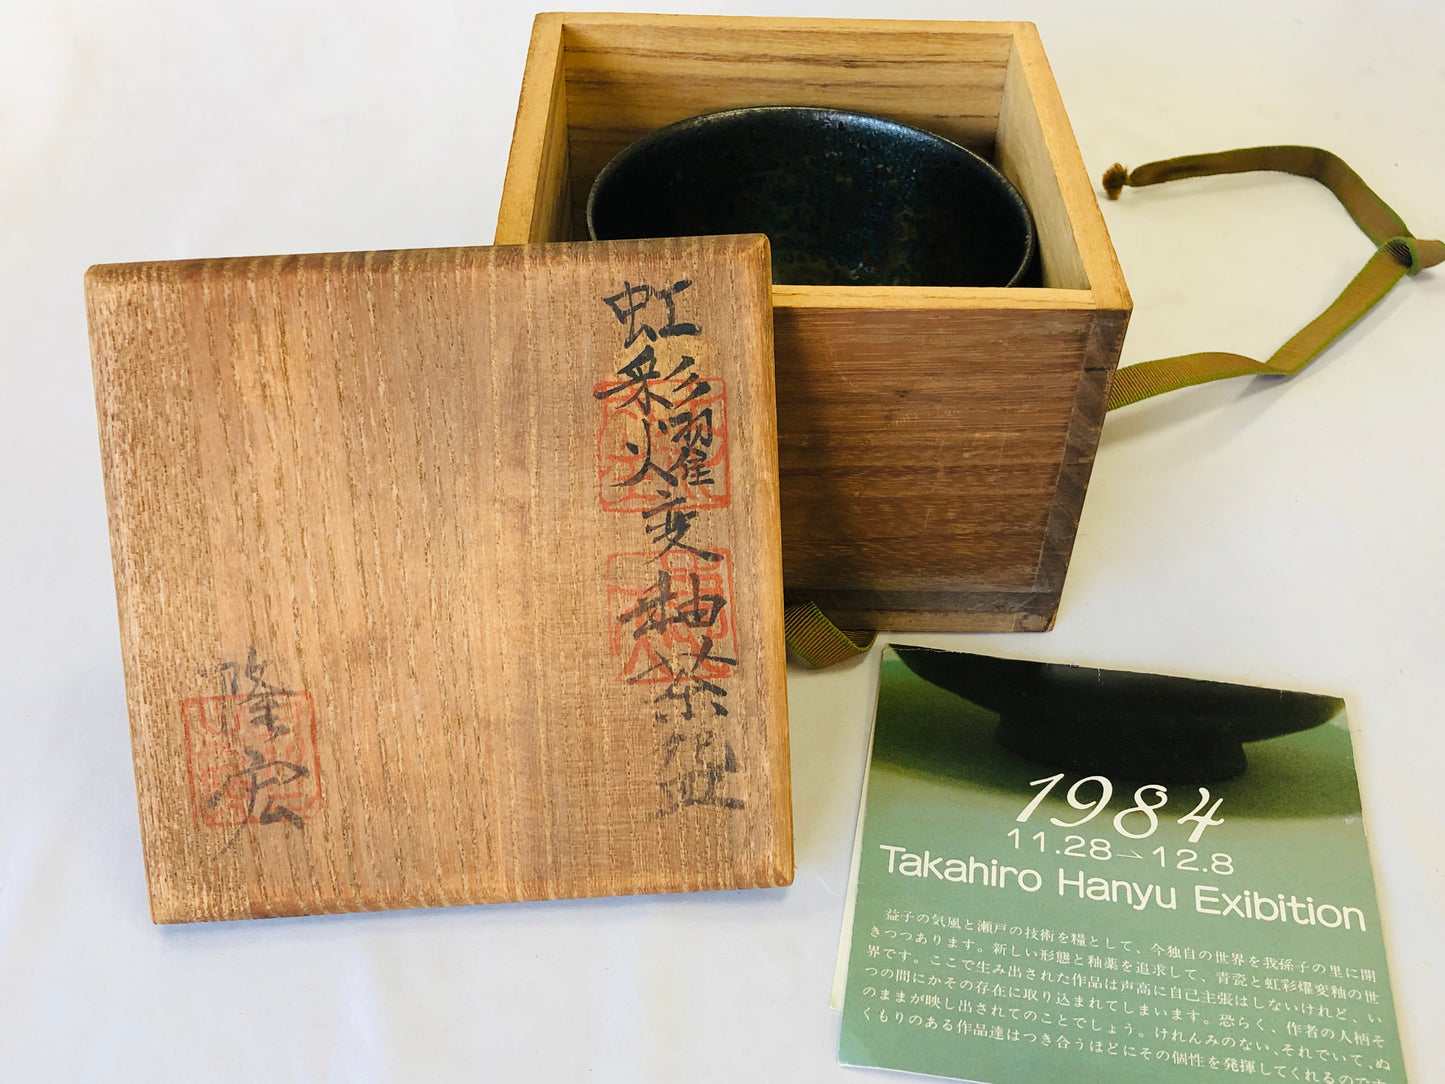 虹彩燿変釉茶盌
隆宏
1984
11.28→12.8
Takahiro Hanyu Exibition
益子の気風と瀬戸の技術を糧として、今独自の世界を我孫子の里に開
きつつあります。新しい形態と釉薬を追求して、青瓷と虹彩燿変釉の世
界です。ここで生み出された作品は声高に自己主張はしないけれど、い
つの間にかその存在に取り込まれてしまいます。恐らく、作者の人柄そ
のままが映し出されてのことでしょう。けれんみのない、それでいて、ぬ
くもりのある作品達はつき合うほどにその個性を発揮してくれるので